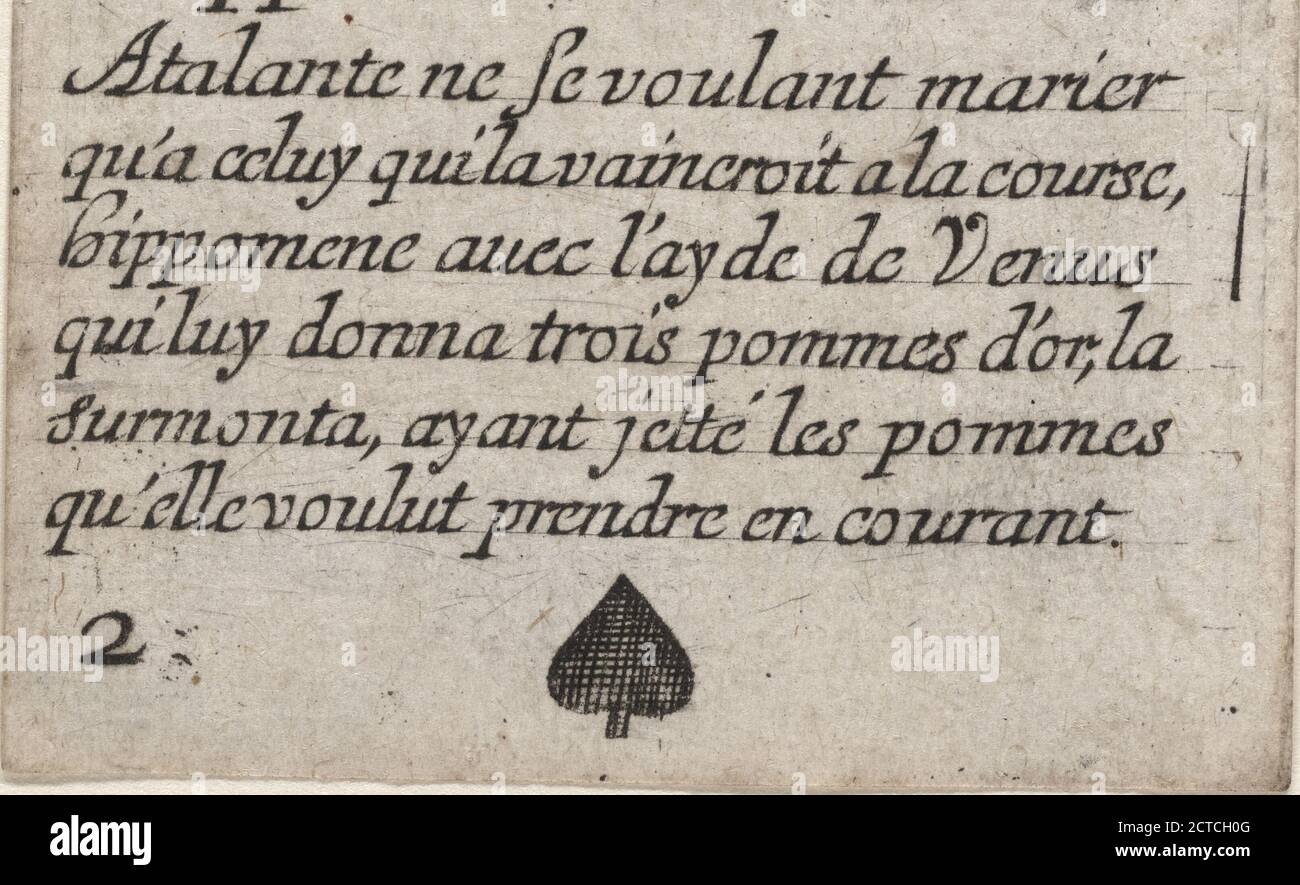 Atalante ne se voulant marier
qu'a celuy qui la vaincroit a la course,
hippomene auec l'ayde de Venus
qui luy donna trois pommes d'or, la
surmonta, ayant jetté les pommes
qu'elle voulut prendre en courant.
2
alamy
Image ID: 2CTCH0G
www.alamy.com